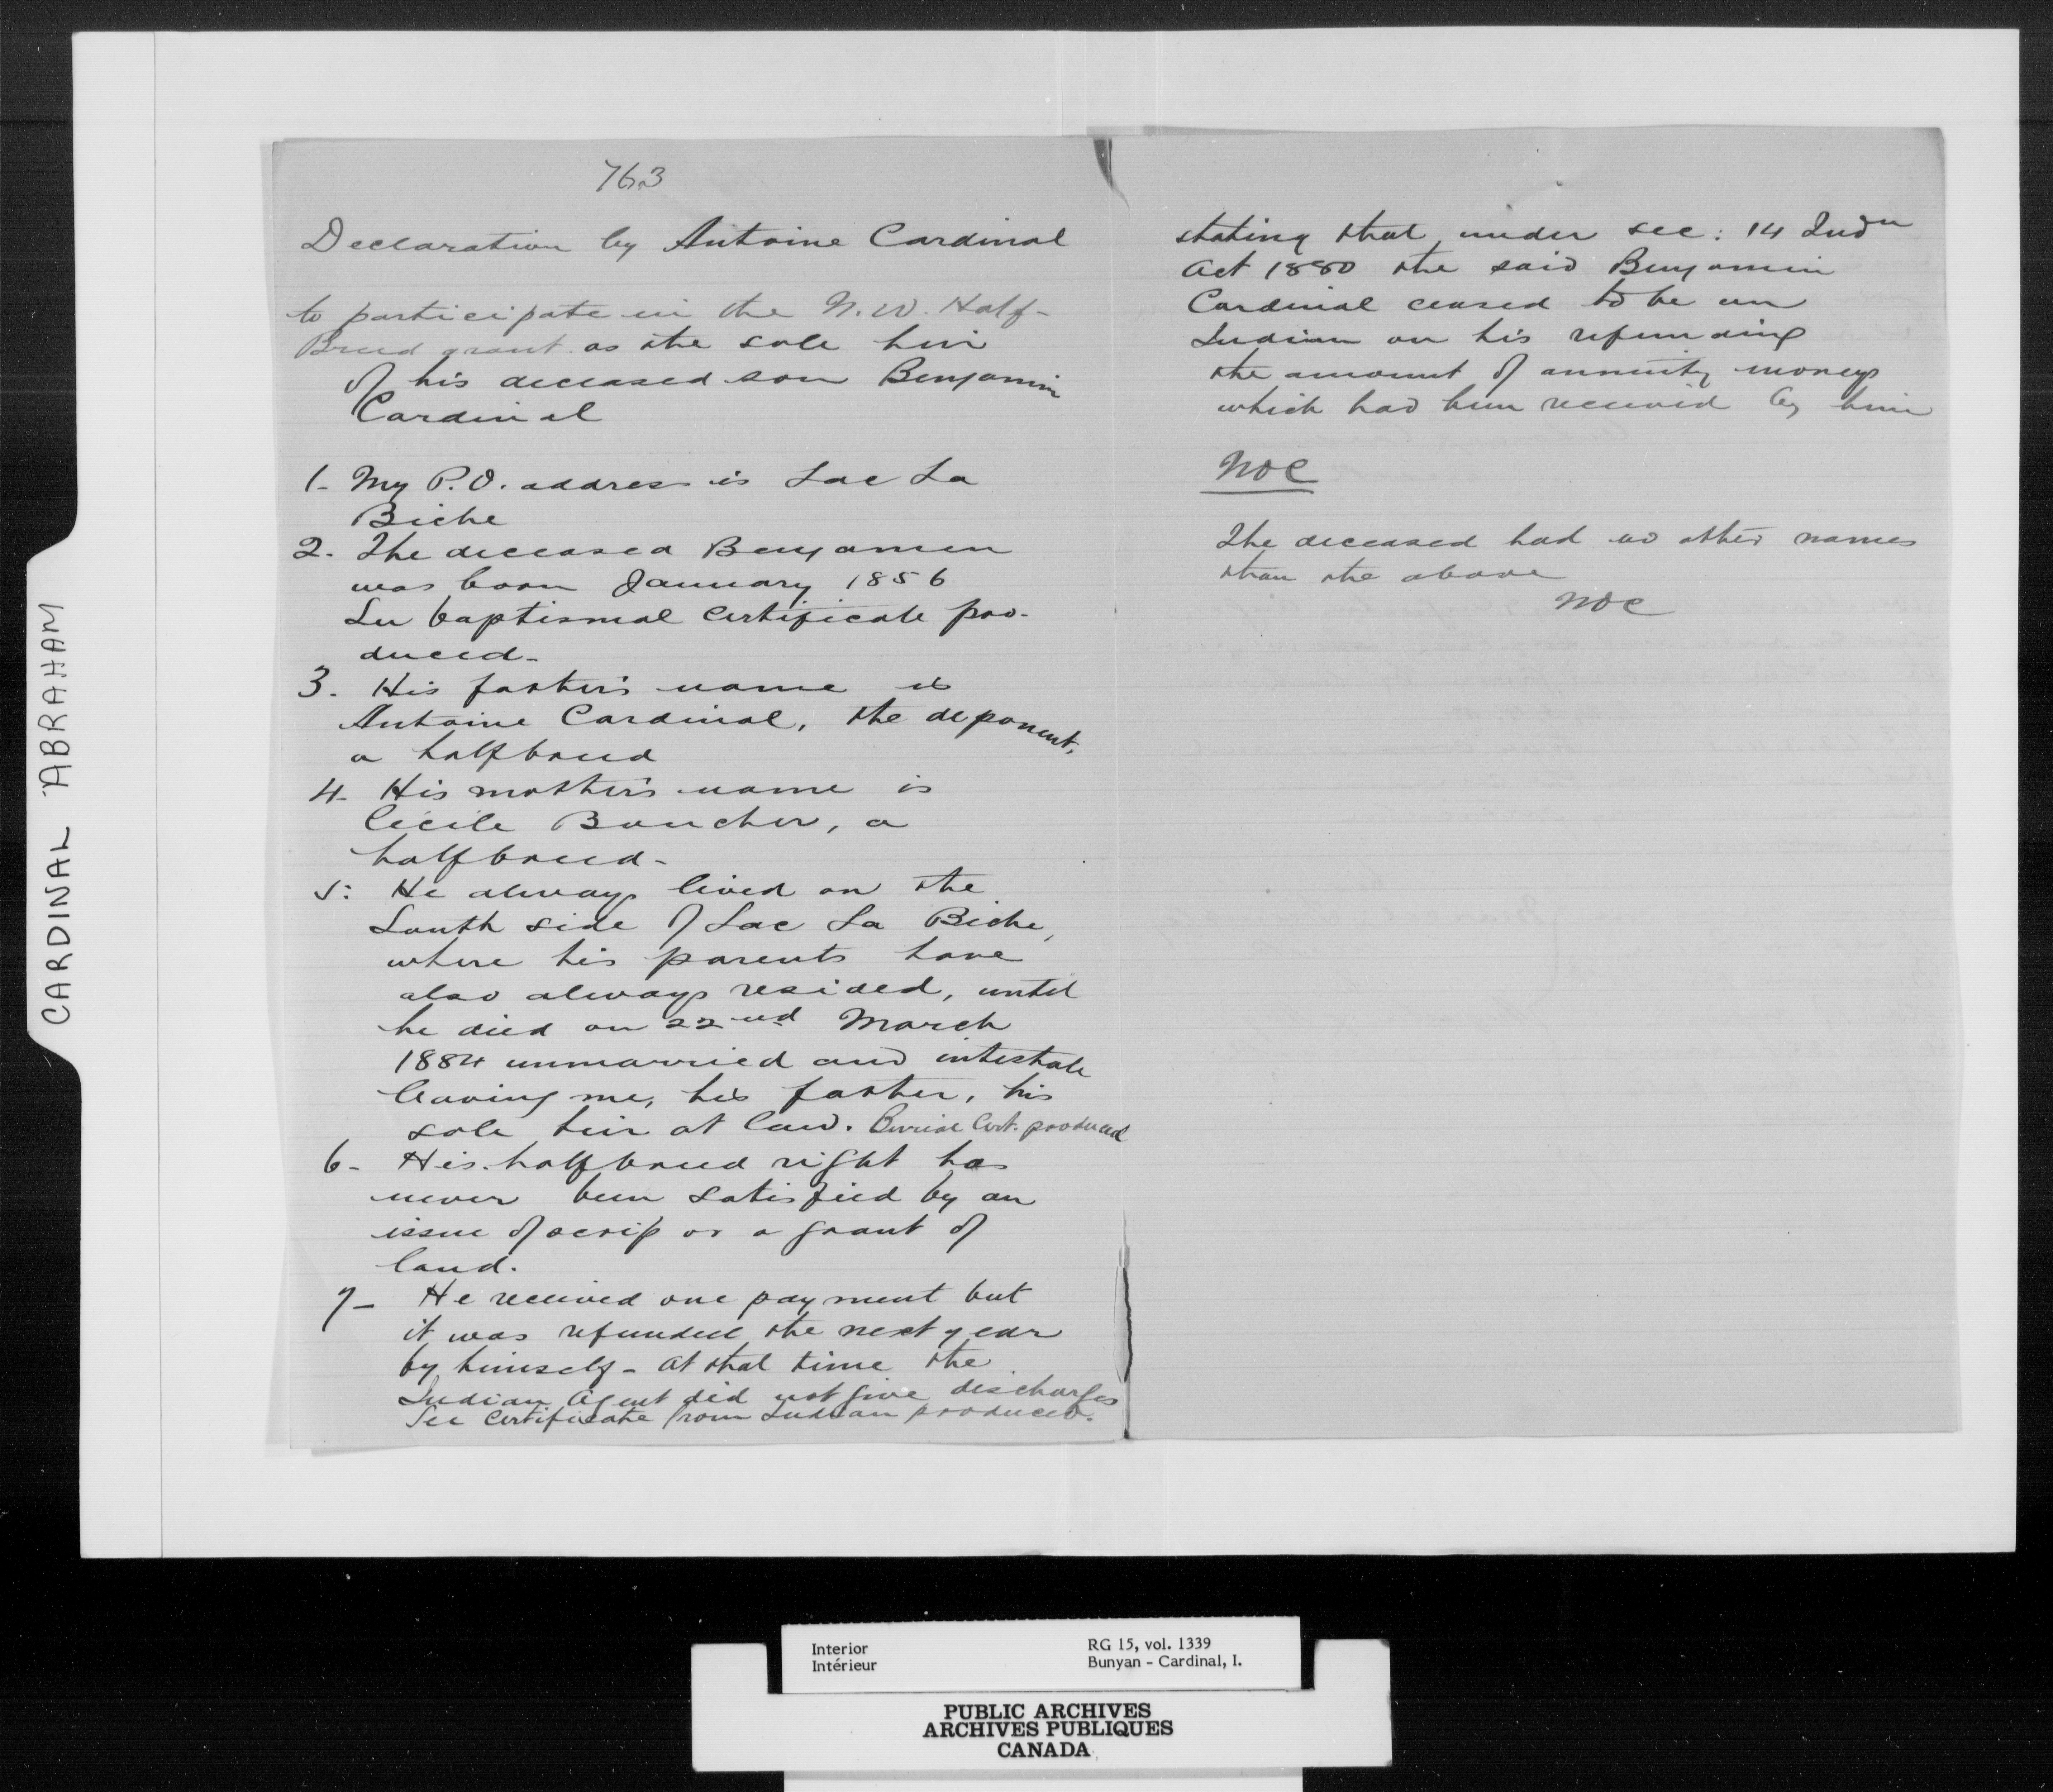 CARDINAL ABRAHAM
763
Declaration by Antoine Cardinal
to participate in the N.W. Half-
Breed grant as the sole heir
of his deceased son Benjamin
Cardinal
1- My P.O. address is Lac La
Biche
2. The deceased Benjamin
was born January 1856
See baptismal certificate pro-
duced-
3. His father's name is
Antoine Cardinal, the deponent,
a halfbreed
4- His mother's name is
Cécile Boucher, a
halfbreed-
5: He always lived on the
South side of Lac La Biche,
where his parents have
also always resided, until
he died on 22nd March
1884 unmarried and intestate
leaving me, his father, his
sole heir at law. Burial Cert. produced
6- His halfbreed right has
never been satisfied by an
issue of scrip or a grant of
land.
7- He received one payment but
it was refunded the next year
by himself- at that time the
Indian Agent did not give discharges
See certificate from Indian produced.
stating that under sec: 14 Indn
Act 1880 the said Benjamin
Cardinal ceased to be an
Indian on his refunding
the amount of annuity moneys
which had been received by him
NOC
The deceased had no other names
than the above
NOC
Interior
Intérieur
RG 15, vol. 1339
Bunyan - Cardinal, I.
PUBLIC ARCHIVES
ARCHIVES PUBLIQUES
CANADA